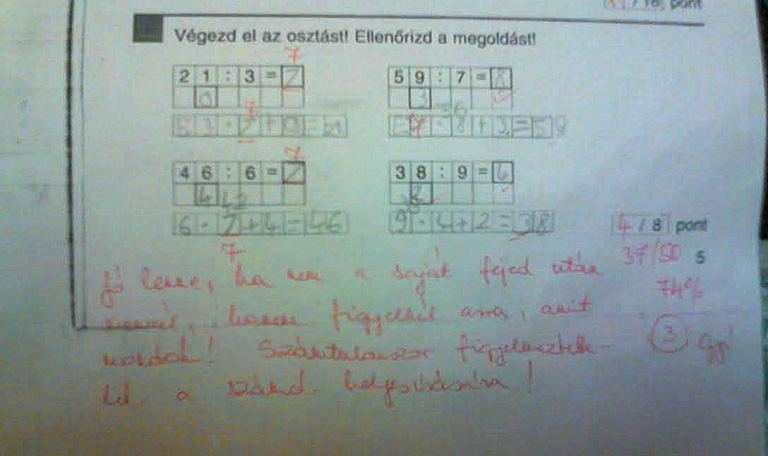 / 18, pont
Végezd el az osztást! Ellenőrizd a megoldást!
7
21:3=7 59:7=8
0 3
3·7+0=21 7·8+3=59
7
46:6=7 38:9=4
4 2
6·7+4=46 9·4+2=38 4/8 pont
7 37/50 5
Jó lenne, ha nem a saját fejed után 74%
mennél, hanem figyelnél arra, amit
mondok! Számtalanszor figyelmeztette- 3
lek a számj. helyesírására!